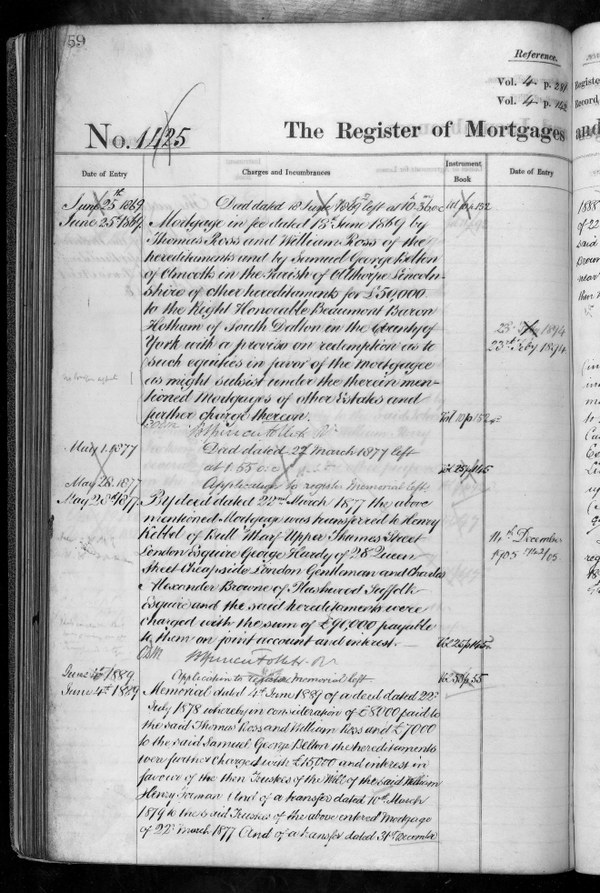 59
Reference.
Vol. 4 p. 281
Vol. 4 p. 142
No. 1425 The Register of Mortgages and
Date of Entry Charges and Incumbrances Instrument Book Date of Entry
June 25th 1869 Deed dated 18 June 1869 left at 10.30 Vol 10 p 152
June 25th 1869 Mortgage in fee dated 18th June 1869 by
Thomas Ross and William Ross of the
hereditaments and by Samuel George Kelton
of in the Parish of Lincoln-
shire of other hereditaments for £50,000
to the Right Honorable Beaumont Baron
Hotham of South Dalton in the County of
York with a proviso on redemption as to
such equities in favor of the mortgagee
as might subsist under the therein men-
tioned Mortgages of other Estates and
further charge therein Vol 10 p 152
23 Feb 1894
23rd Feby 1894
May 1 1877 Deed dated 22 March 1877 left
at 1.55 Vol 25 p 445
May 28. 1877 Application to register Memorial left
May 28th 1877. By deed dated 22nd March 1877 the above
mentioned Mortgage was transferred to Henry
of Bull Wharf Upper Thames Street
London Esquire George Hardy of 28 Queen
Street Cheapside London Gentleman and Charles
Alexander Browne of Suffolk
Esquire and the said hereditaments were
charged with the sum of £90,000 payable
to them on joint account and interest. Vol 25 p 445
14th December
1905
June 1889 Application to register Memorial left Vol 58 p 55
June 4th 1889 Memorial dated 4th June 1889 of a deed dated 22nd
July 1878 whereby in consideration of £8000 paid to
the said Thomas Ross and William Ross and £7000
to the said Samuel George Kelton the hereditaments
were further charged with £15,000 and interest in
favour of the then Trustees of the Will of the said William
Henry Forman And of a transfer dated 10th March
1879 to the said Trustees of the above entered Mortgage
of 22nd March 1877 And of a transfer dated 31st December